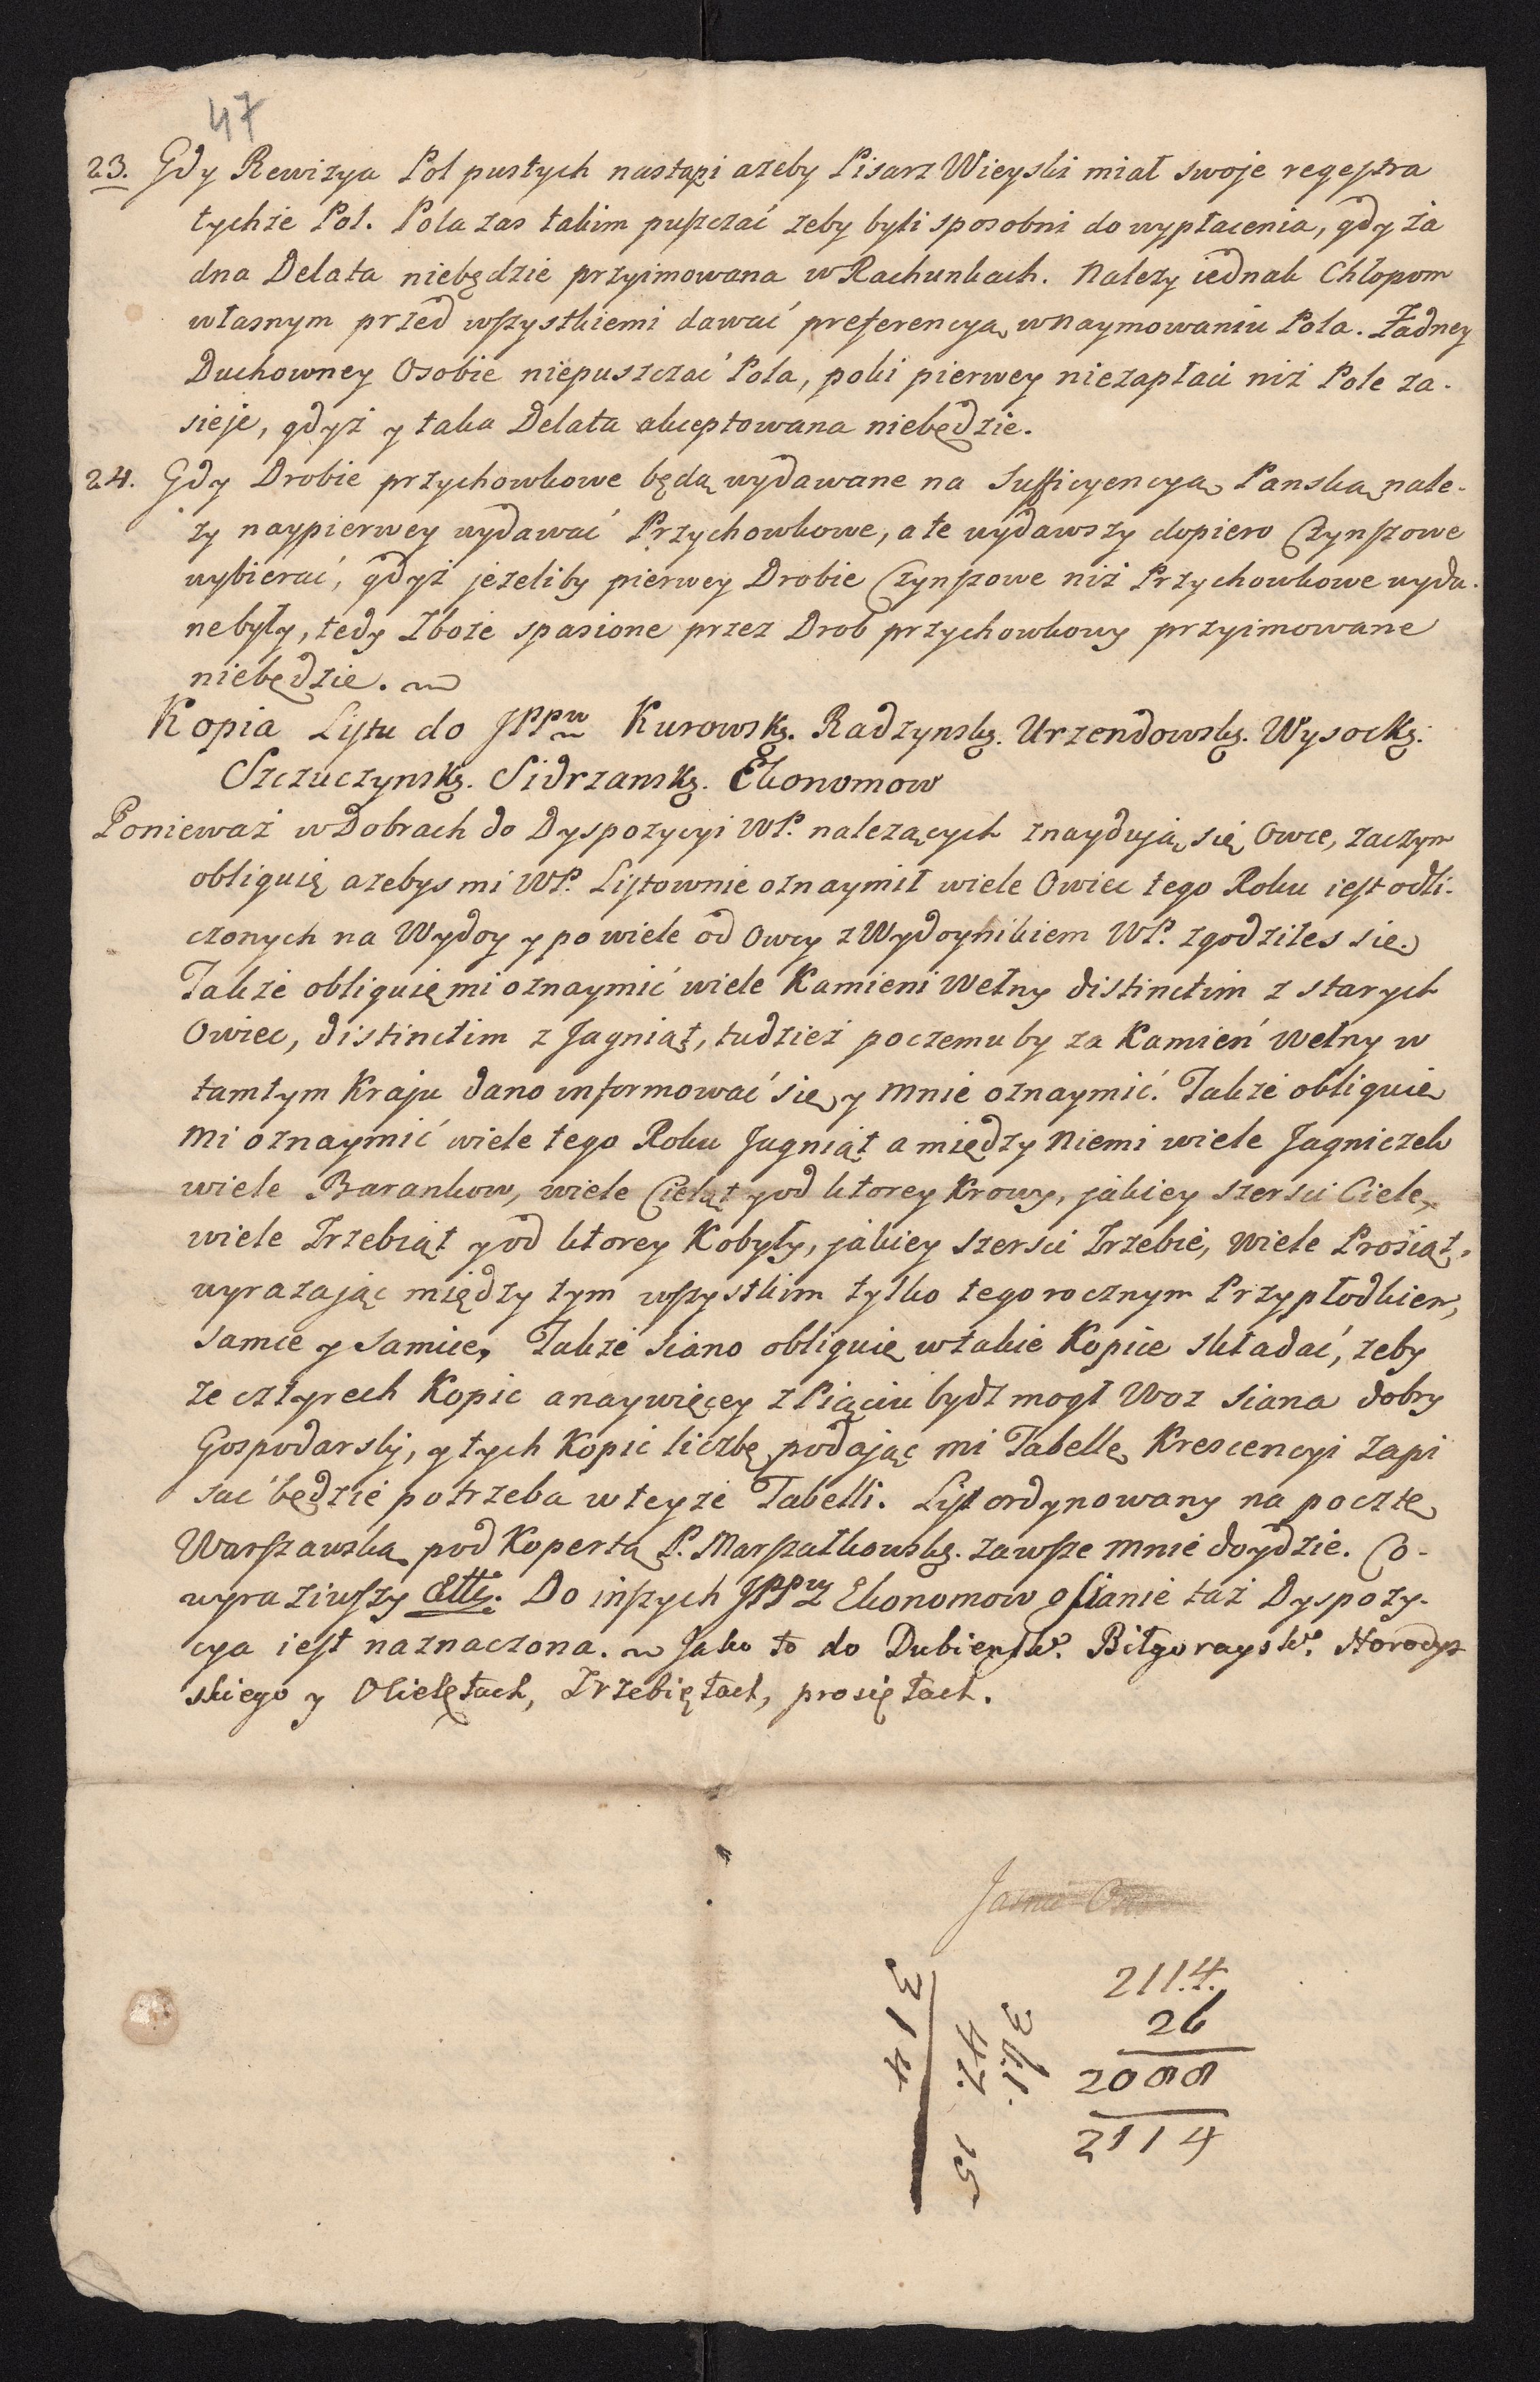 47
23. Gdy Rewizya Pol pustych nastąpi azeby Pisarz Wieyski miał swoje regestra
tychże Pol. Pola zas takim puszczać zeby byli sposobni do wypłacenia, gdy ża
dna Delata niebędzie przyimowana w Rachunkach. Nalezy iednak Chłopom
własnym przed wszystkiemi dawać preferencyą w Naymowaniu Pola. Żadney
Duchowney Osobie niepuszczać Pola, poki pierwey niezapłaci niż Pole za-
sieje, gdyż y taka Delata akceptowana niebędzie.
24. Gdy Drobie przychowkowe będą wydawane na Sufficyencyą Panską nale-
zy naypierwey wydawać Przychowkowe, a te wydawszy dopiero Czynszowe
wybierać, gdyż jezeliby pierwey Drobie Czynszowe niż Przychowkowe wyda-
ne były, tedy Zboże spasione przez Drob przychowkowy przyimowane
niebędzie.
Kopia Listu do JPPw Kurowskg. Radzynskg. Urzendowskg. Wysockg.
Szczuczynskg. Sidrzanskg. Ekonomow
Ponieważ w Dobrach do Dyspozycyi WP. nalezących znaydują się Owce, zaczym
obliguię azebys mi WP. Listownie oznaymił wiele Owiec tego Roku iest odli-
czonych na Wydoy y po wiele od Owcy z Wydoynikiem WP. zgodziłes się.
Także obliguię mi oznaymić wiele Kamieni Wełny distinctim z starych
Owiec, distinctim z Jagniąt, tudzież poczemu by za Kamień Wełny w
tamtym Kraju dano informować się y mnie oznaymić. Także obliguię
mi oznaymić wiele tego Roku Jagniąt a między niemi wiele Jagniczek
wiele Barankow, wiele Cieląt y od ktorey Krowy, jakiey szersci Cielę,
wiele Zrzebiąt y od ktorey Kobyły, jakiey szersci Zrzebie, wiele Prosiąt,
wyrazając między tym wszystkim tylko tegorocznym Przypłodkiem,
samce y samice. Także siano obliguię w takie Kopice składać, zeby
ze cztyrech Kopic a naywięcey z Piąciu bydź mogł Woz siana dobry
Gospodarskj, y tych Kopic liczbę podając mi Tabellę Krescencyi zapi
sać będzie potrzeba w teyże Tabelli. List ordynowany na pocztę
Warszawską pod Kopertą P. Marszałkowskg. zawsze mnie doydzie. Co-
wyraziwszy Ettc. Do inszych JPPw Ekonomow o sianie taż Dyspozy-
cya iest naznaczona. Jako to do Dubiensk. Biłgoraysk. Horodys
skiego y O Cielętach, Zrzebiętach, prosiętach.
Jasnie
211.4.
26
2114
314
47.
15